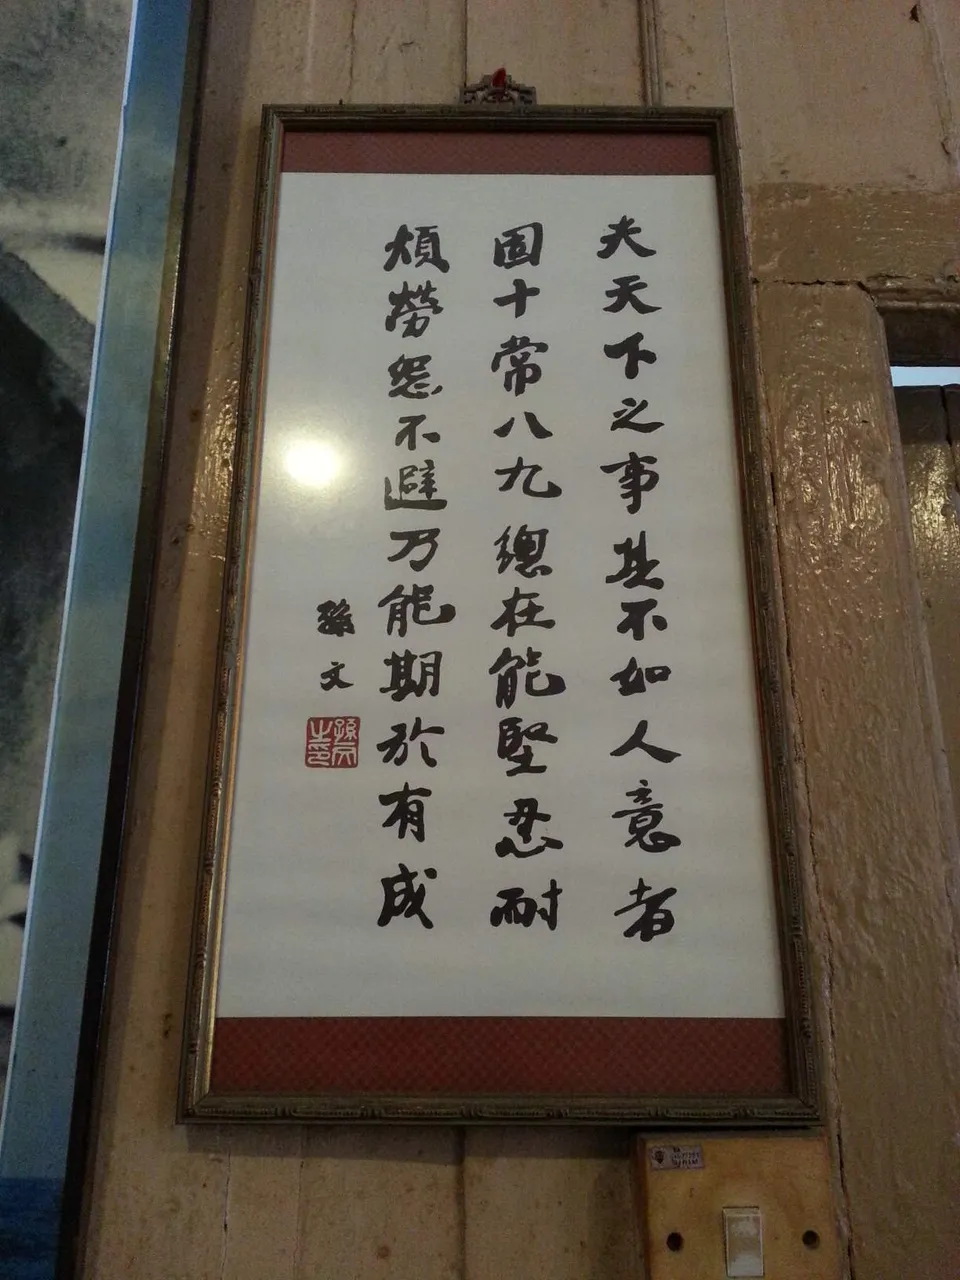 夫天下之事其不如人意者
固十常八九總在能堅忍耐
煩勞怨不避乃能期於有成
孫文
孫文之印